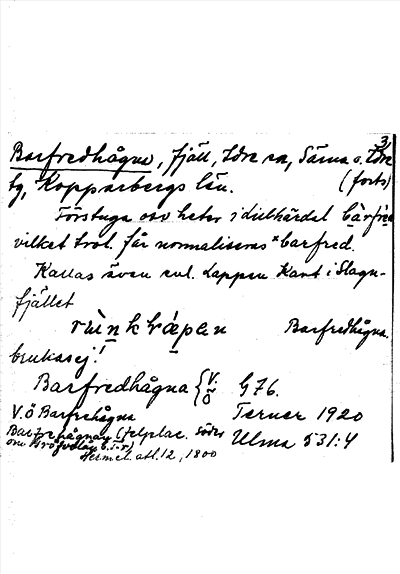 3
Barfredhågna, fjäll, Idre sn, Särna o. Idre
tg, Kopparbergs län. (forts)
Förstuga osv heter i Lillhärdal
vilket trol. får normaliseras *barfred.
Kallas även enl. Lappen Kant i Slagu-
fjället
Barfredhågna
brukas ej!
Barfredhågna { V. Ö G 76.
V. Ö Barfrehågna Terner 1920
Barfrehågnan (felplac. söder Ulma 531:4
om
Hermel. atl. 12, 1800